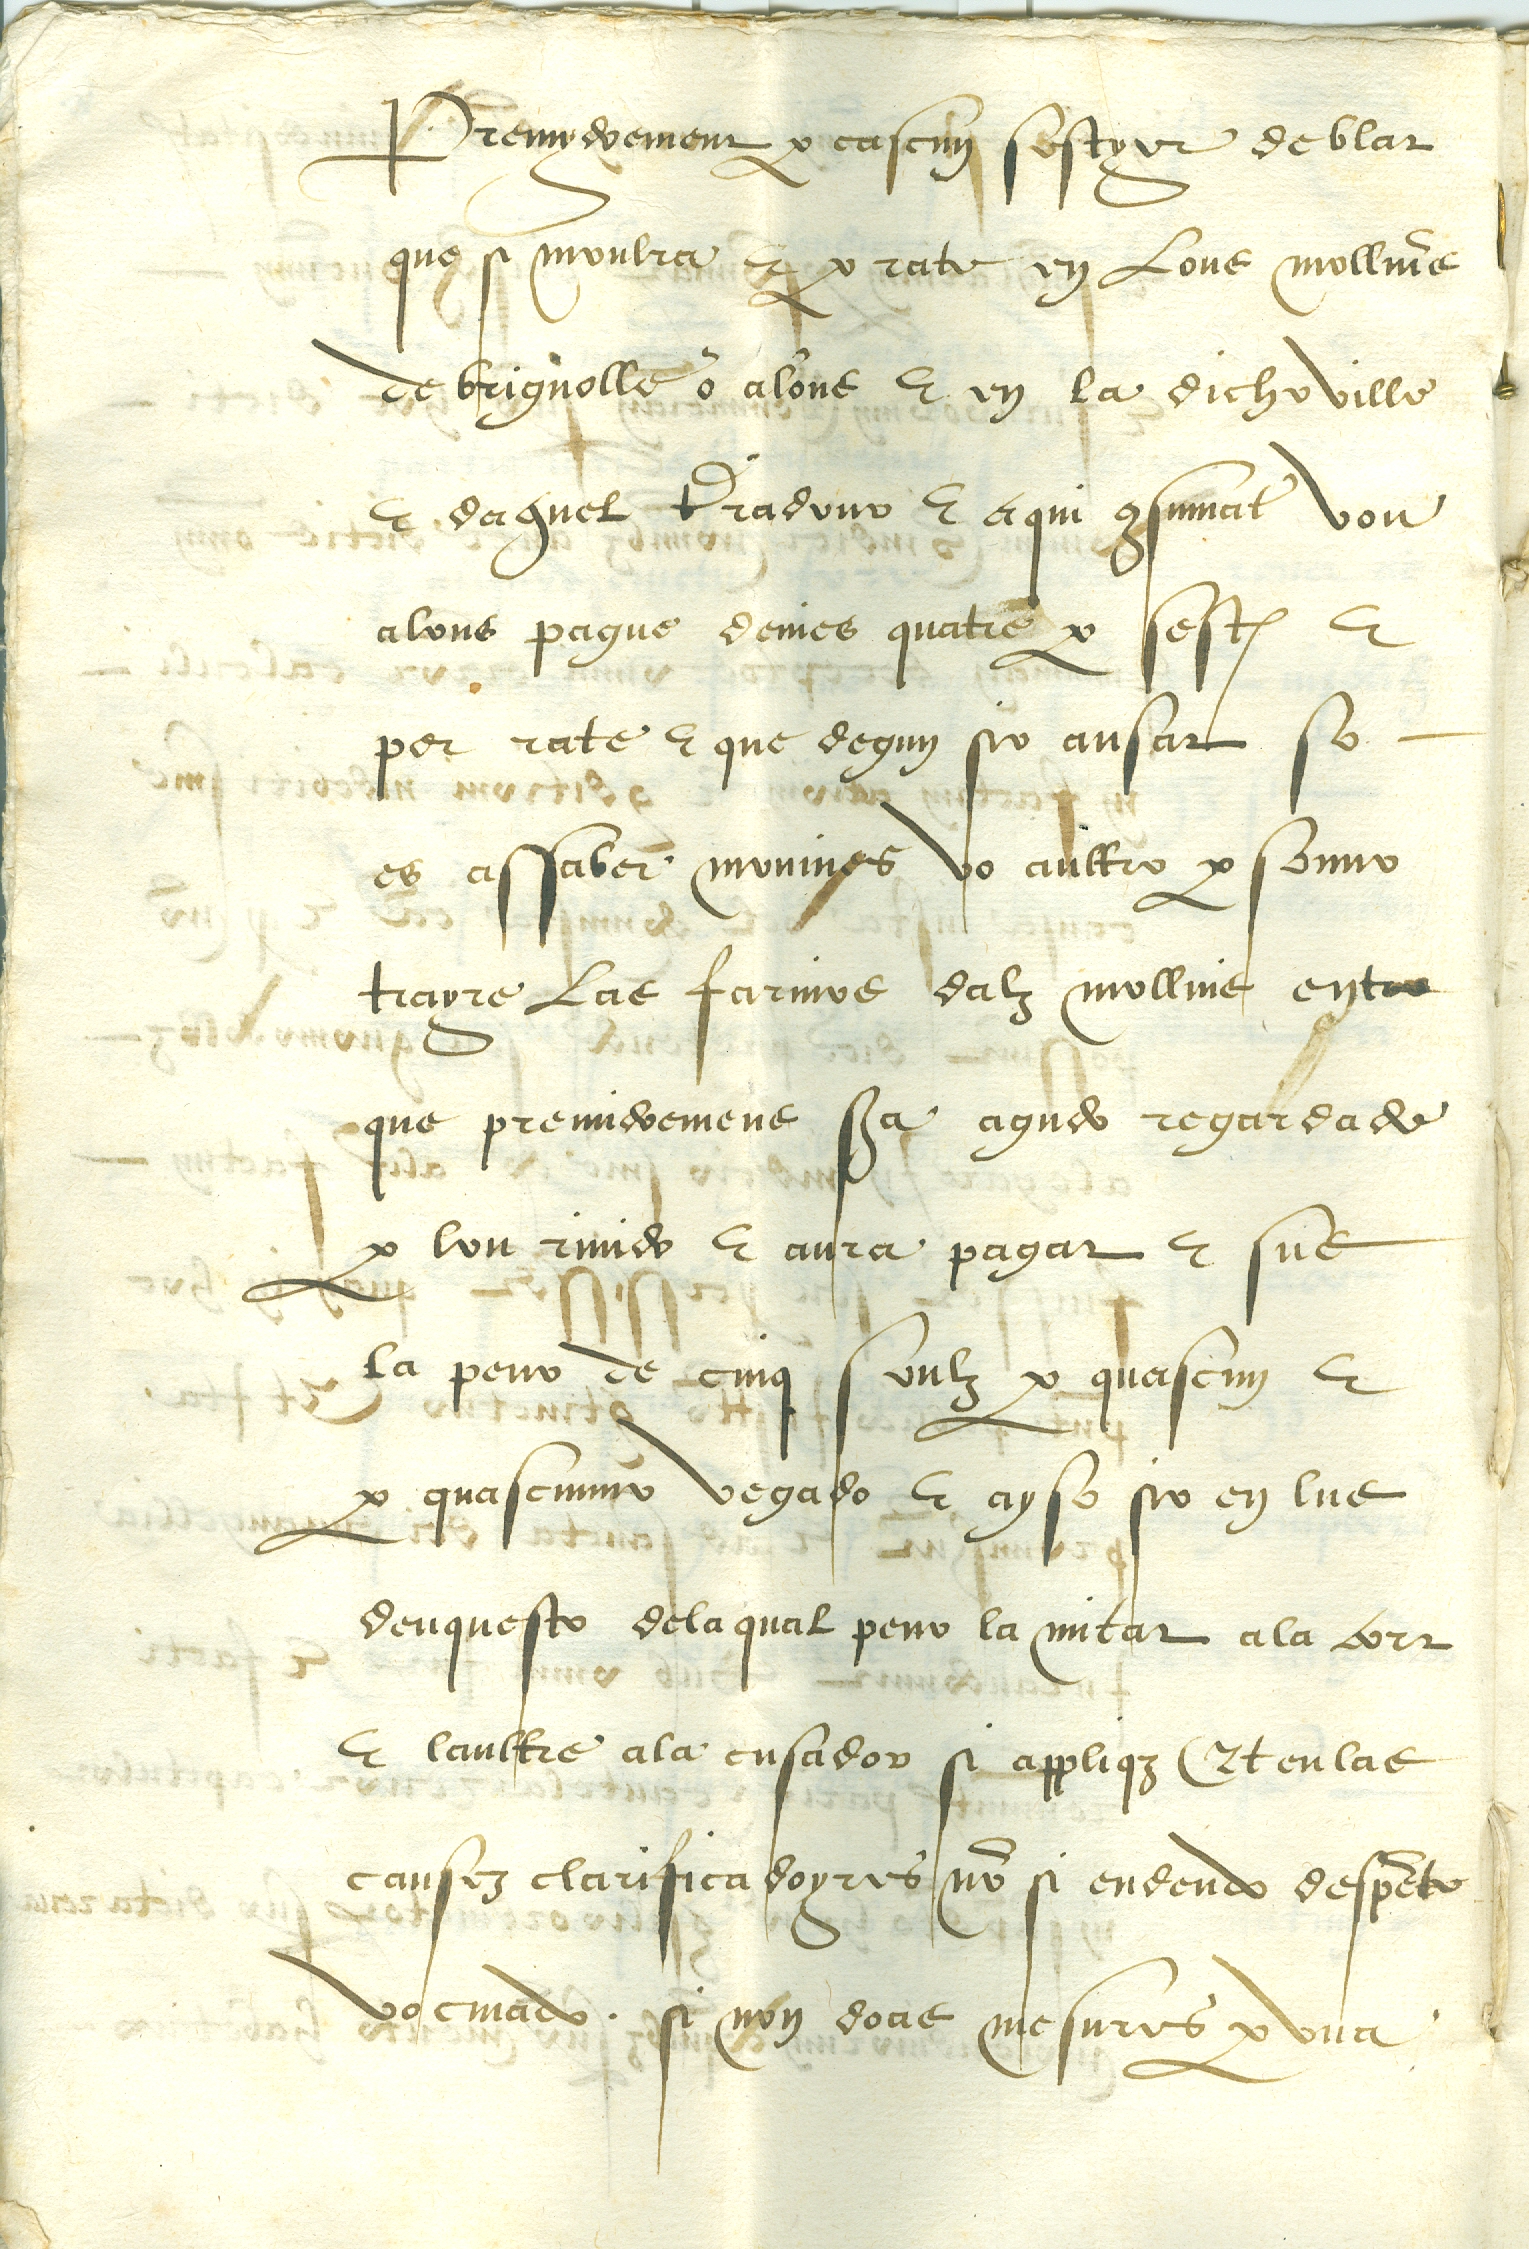 Premyeyrement per cascun sestyer de blat
que si moulra et per rate en Lous mollins
de brignolle o alous et en la dicho ville
et daquel tradour et aqui consumat vou
alous pague deniers quatre per sest et
per rate et que degun sio ausar so
es assaber mouniers vo aultro persouno
trayre Las farinos dalz mollins entro
que premieyrement sya agudo regardado
per lou reivido et aura pagat et sus
la peno de cinq soulz per quascun et
per quascunno vegado et ayso sio en lus
denquesto de la qual peno la mitat a la cort
et laultre a la cusadou si appliqz Et en las
causez clarificadoyres non si endendo despento
vo civado. si non doas mesures per una